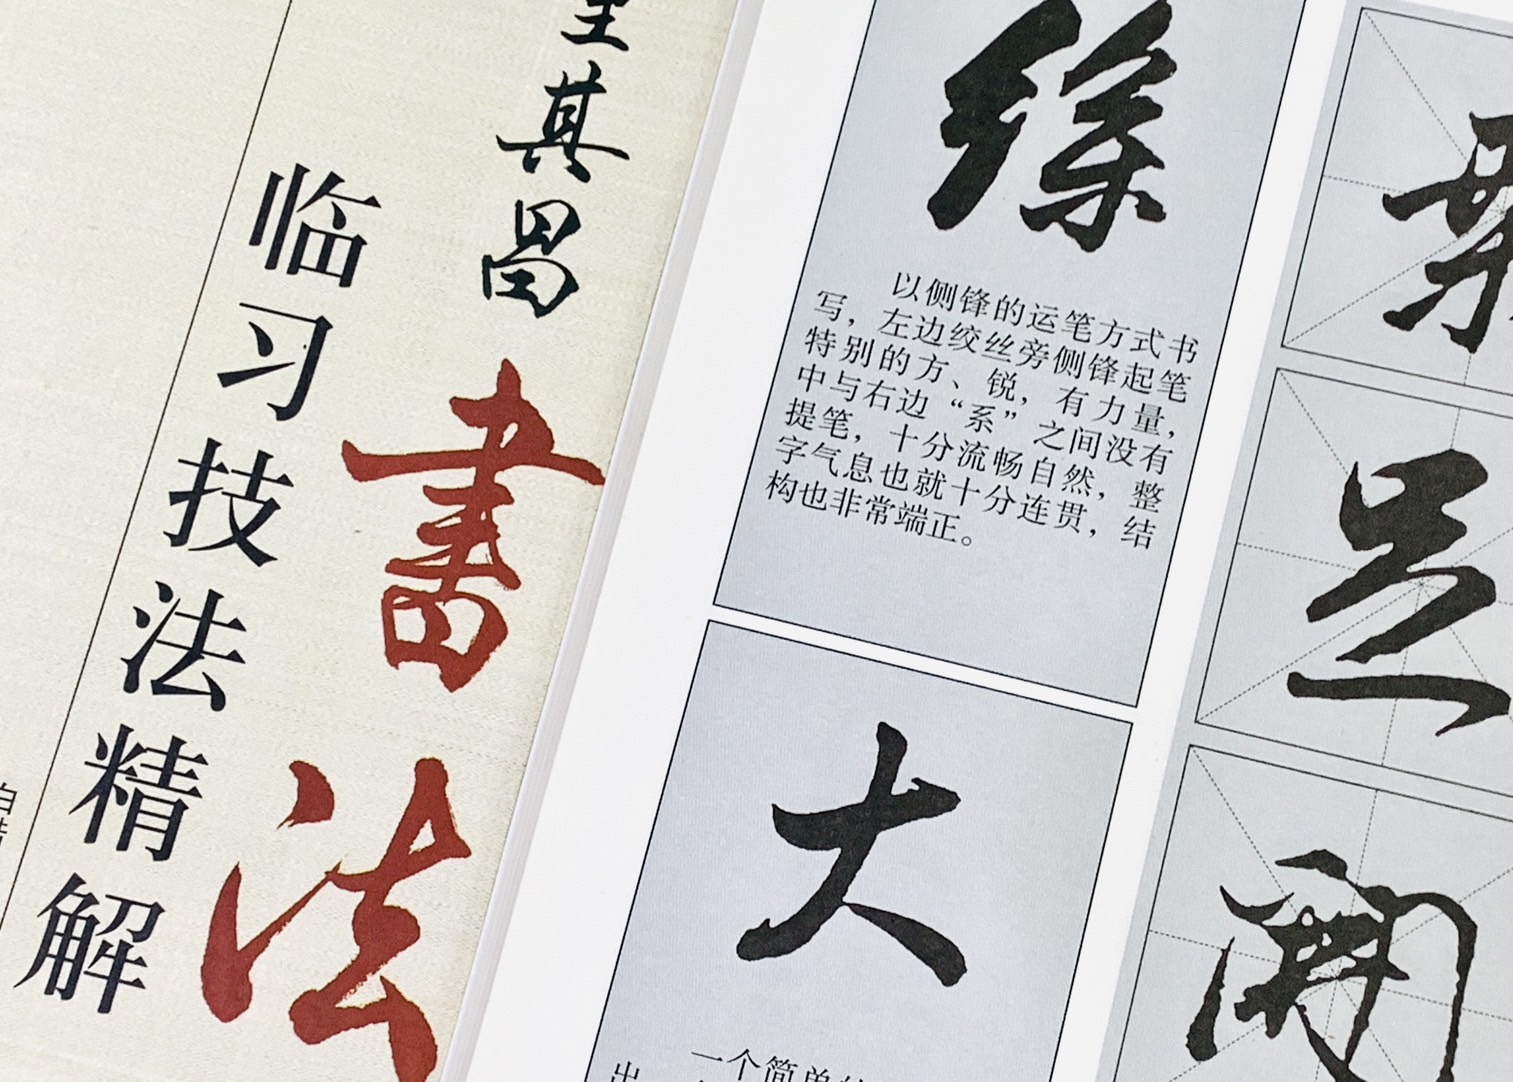 董其昌
書法
临习技法精解
以侧锋的运笔方式书
写，左边绞丝旁侧锋起笔
特别的方、锐，有力量，
中与右边“系”之间没有
提笔，十分流畅自然，整
字气息也就十分连贯，结
构也非常端正。
大
一个简单的
出
足
開